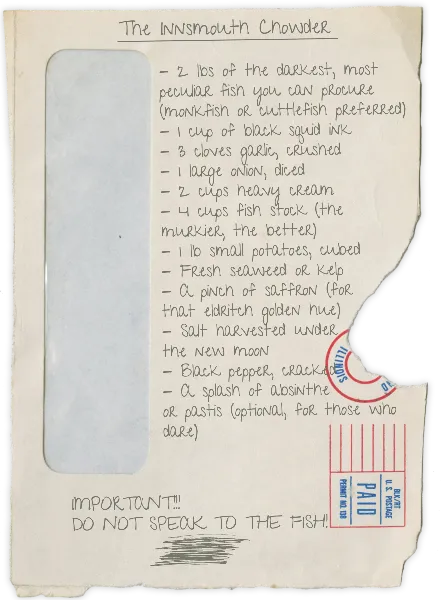 The Innsmouth Chowder
- 2 lbs of the darkest, most
peculiar fish you can procure
(monkfish or cuttlefish preferred)
- 1 cup of black squid ink
- 3 cloves garlic, crushed
- 1 large onion, diced
- 2 cups heavy cream
- 4 cups fish stock (the
murkier, the better)
- 1 lb small potatoes, cubed
- Fresh seaweed or kelp
- A pinch of saffron (for
that eldritch golden hue)
- Salt harvested under
the new moon
- Black pepper, cracked
- A splash of absinthe
or pastis (optional, for those who
dare)
ILLINOIS
BLK/RT
U.S. POSTAGE
PAID
PERMIT NO. 138
IMPORTANT!!!
DO NOT SPEAK TO THE FISH!